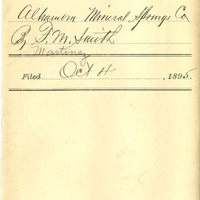 Alhambra Mineral Springs Co
By F. M. Smith
Martinez
Filed Oct 4, 1895